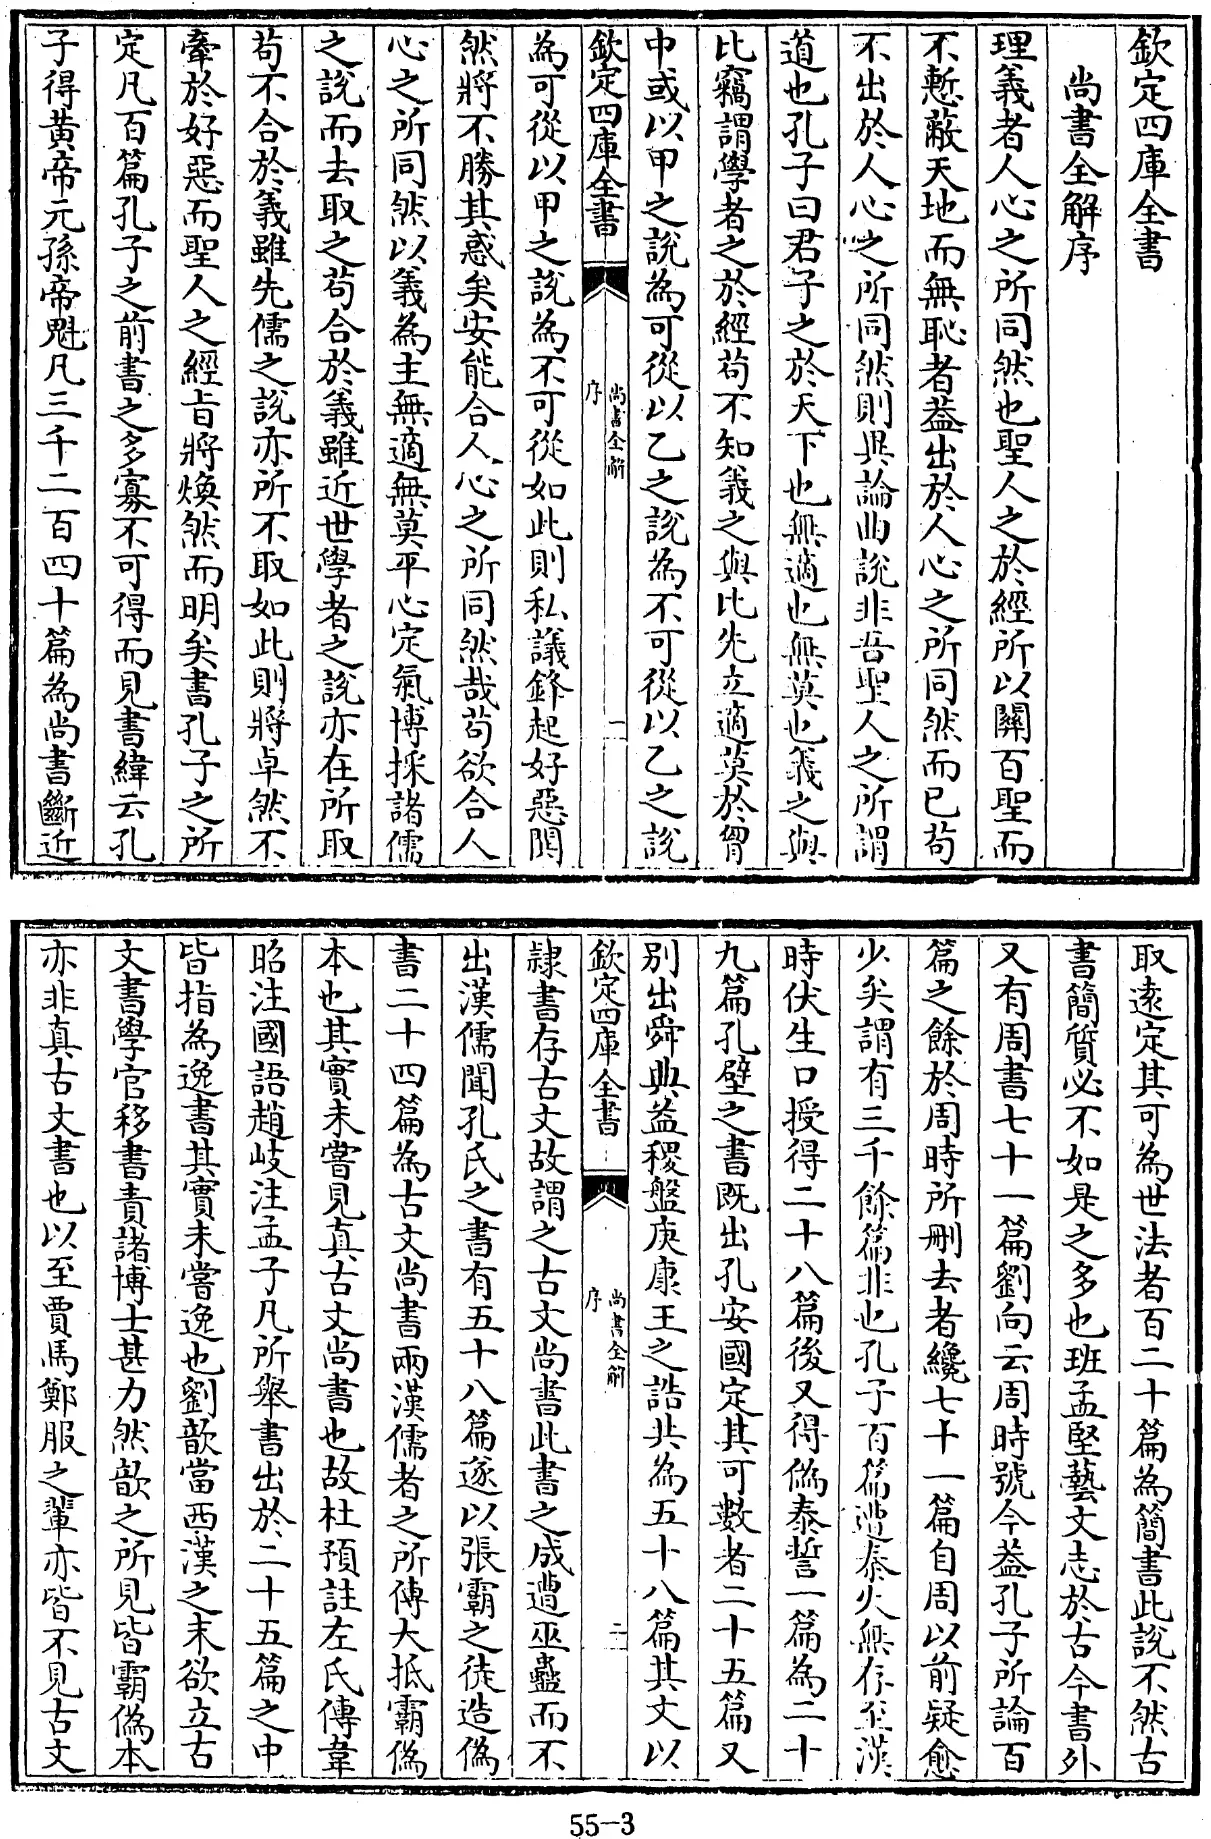 欽定四庫全書
尚書全解序
理義者人心之所同然也聖人之於經所以關百聖而
不慙蔽天地而無恥者葢出於人心之所同然而已苟
不出於人心之所同然則異論曲說非吾聖人之所謂
道也孔子曰君子之於天下也無適也無莫也義之與
比竊謂學者之於經苟不知義之與比先立適莫於胷
中或以甲之說為可從以乙之說為不可從以乙之說
欽定四庫全書
尚書全解
序
一
為可從以甲之說為不可從如此則私議鋒起好惡閧
然將不勝其惑矣安能合人心之所同然哉苟欲合人
心之所同然以義為主無適無莫平心定氣博採諸儒
之說而去取之苟合於義雖近世學者之說亦在所取
苟不合於義雖先儒之說亦所不取如此則將卓然不
牽於好惡而聖人之經旨將煥然而明矣書孔子之所
定凡百篇孔子之前書之多寡不可得而見書緯云孔
子得黄帝元孫帝魁凡三千二百四十篇為尚書斷近
取遠定其可為世法者百二十篇為簡書此說不然古
書簡質必不如是之多也班孟堅藝文志於古今書外
又有周書七十一篇劉向云周時號令葢孔子所論百
篇之餘於周時所刪去者纔七十一篇自周以前疑愈
少矣謂有三千餘篇非也孔子百篇遭秦火無存至漢
時伏生口授得二十八篇後又得偽泰誓一篇為二十
九篇孔壁之書既出孔安國定其可數者二十五篇又
別出舜典益稷盤庚康王之誥共為五十八篇其文以
欽定四庫全書
尚書全解
序
二
隸書存古文故謂之古文尚書此書之成遭巫蠱而不
出漢儒聞孔氏之書有五十八篇遂以張霸之徒造偽
書二十四篇為古文尚書兩漢儒者之所傳大抵霸偽
本也其實未嘗見真古文尚書也故杜預註左氏傳韋
昭注國語趙岐注孟子凡所舉書出於二十五篇之中
皆指為逸書其實未嘗逸也劉歆當西漢之末欲立古
文書學官移書責諸博士甚力然歆之所見皆霸偽本
亦非真古文書也以至賈馬鄭服之輩亦皆不見古文
55-3